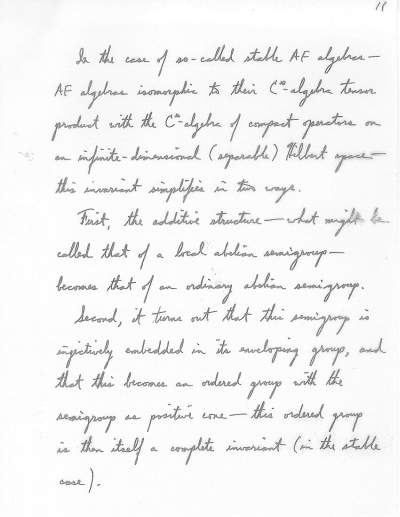 11
In the case of so-called stable AF algebras—
AF algebras isomorphic to their C*-algebra tensor
product with the C*-algebra of compact operators on
an infinite-dimensional (separable) Hilbert space—
this invariant simplifies in two ways.
First, the additive structure—what might be
called that of a local abelian semigroup—
becomes that of an ordinary abelian semigroup.
Second, it turns out that this semigroup is
injectively embedded in its enveloping group, and
that this becomes an ordered group with the
semigroup as positive cone—this ordered group
is then itself a complete invariant (in the stable
case).